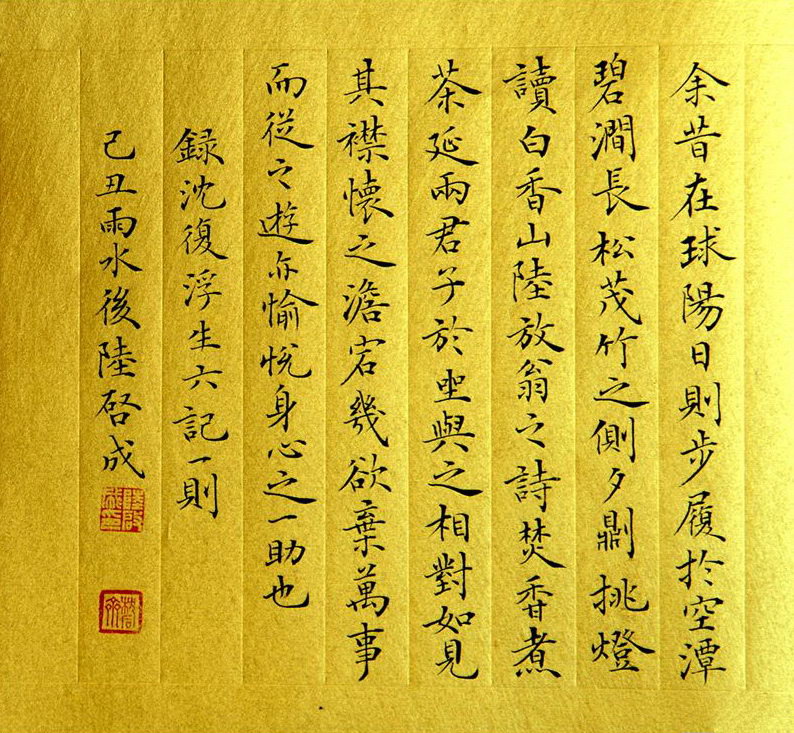 余昔在球陽日則步履於空潭
碧澗長松茂竹之側夕𠟭挑燈
讀白香山陸放翁之詩焚香煮
茶延兩君子於坐與之相對如見
其襟懷之澹宕幾欲棄萬事
而從之遊亦愉悅身心之一助也
録沈復浮生六記一則
己丑雨水後陸啓成